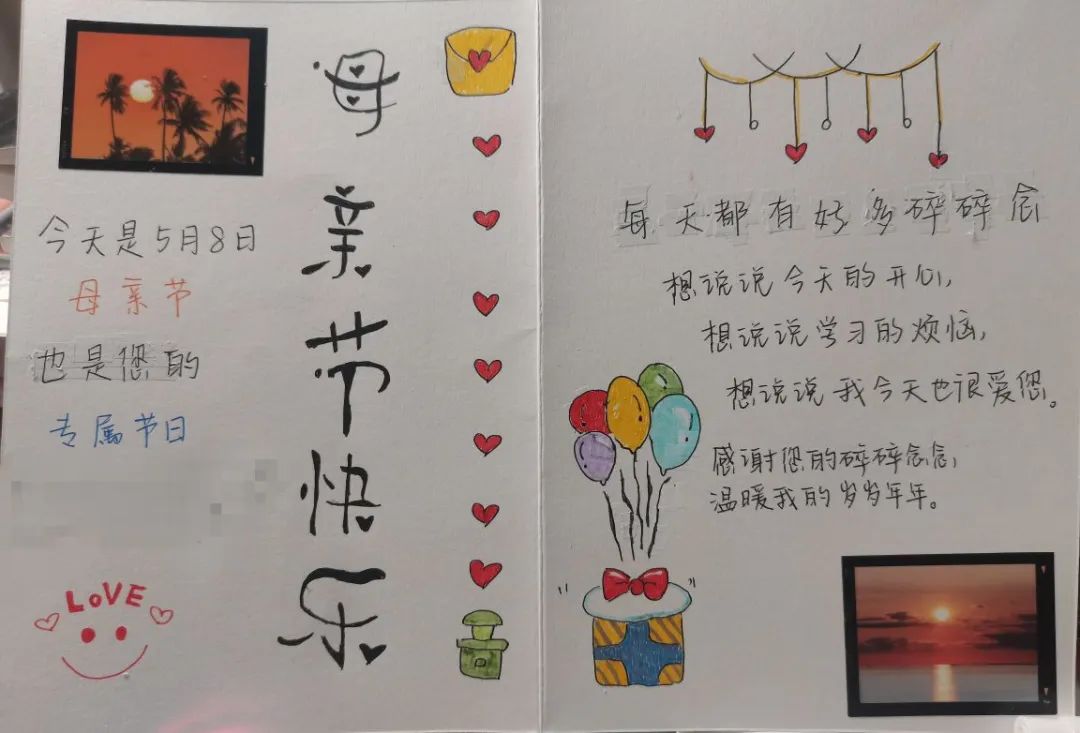 今天是5月8日
母亲节
也是您的
专属节日
LOVE
母亲节快乐
每天都有好多碎碎念
想说说今天的开心,
想说说学习的烦恼,
想说说我今天也很爱您。
感谢您的碎碎念念,
温暖我的岁岁年年。